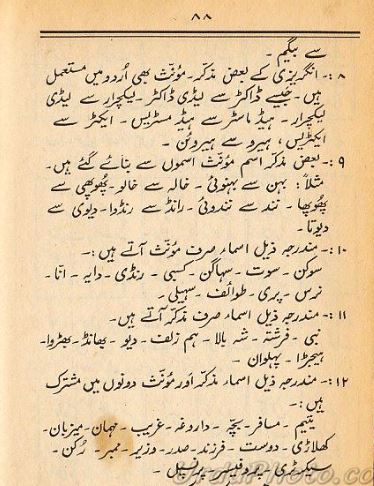 ۸۸
سے بیگم ۔
۸:۔ انگریزی کے بعض مذکر۔ مؤنث بھی اُردو میں مستعمل
ہیں۔ جیسے ڈاکٹر سے لیڈی ڈاکٹر۔ لیکچرار سے لیڈی
لیکچرار۔ ہیڈ ماسٹر سے ہیڈ مسٹریس۔ ایکٹر سے
ایکٹریس، ہیرو سے ہیروئن۔
۹:۔ بعض مذکر اسم مؤنث اسموں سے بنائے گئے ہیں۔
مثلاً: بہن سے بہنوئی۔ خالہ سے خالو۔ پھوپھی سے
پھوپھا۔ نند سے نندوئی۔ رانڈ سے رنڈوا۔ دیوی سے
دیوتا۔
۱۰:۔ مندرجہ ذیل اسماء صرف مؤنث آتے ہیں:۔
سوکن۔ سوت۔ سہاگن۔ کسبی۔ رنڈی۔ دایہ۔ انّا۔
نرس۔ پری۔ طوائف۔ سہیلی۔
۱۱:۔ مندرجہ ذیل اسماء صرف مذکر آتے ہیں۔
نبی۔ فرشتہ۔ شہ بالا۔ ہم زلف۔ دیو۔ بھانڈ۔ بھڑوا۔
ہیجڑا۔ پہلوان۔
۱۲:۔ مندرجہ ذیل اسماء مذکر اور مؤنث دونوں میں مشترک
ہیں:۔
یتیم۔ مسافر۔ بچّہ۔ داروغہ۔ غریب۔ مہمان۔ میزبان۔
کھلاڑی۔ دوست۔ فرزند۔ صدر۔ وزیر۔ ممبر۔ رُکن۔
سیکرٹری۔ پروفیسر۔ پرنسپل۔